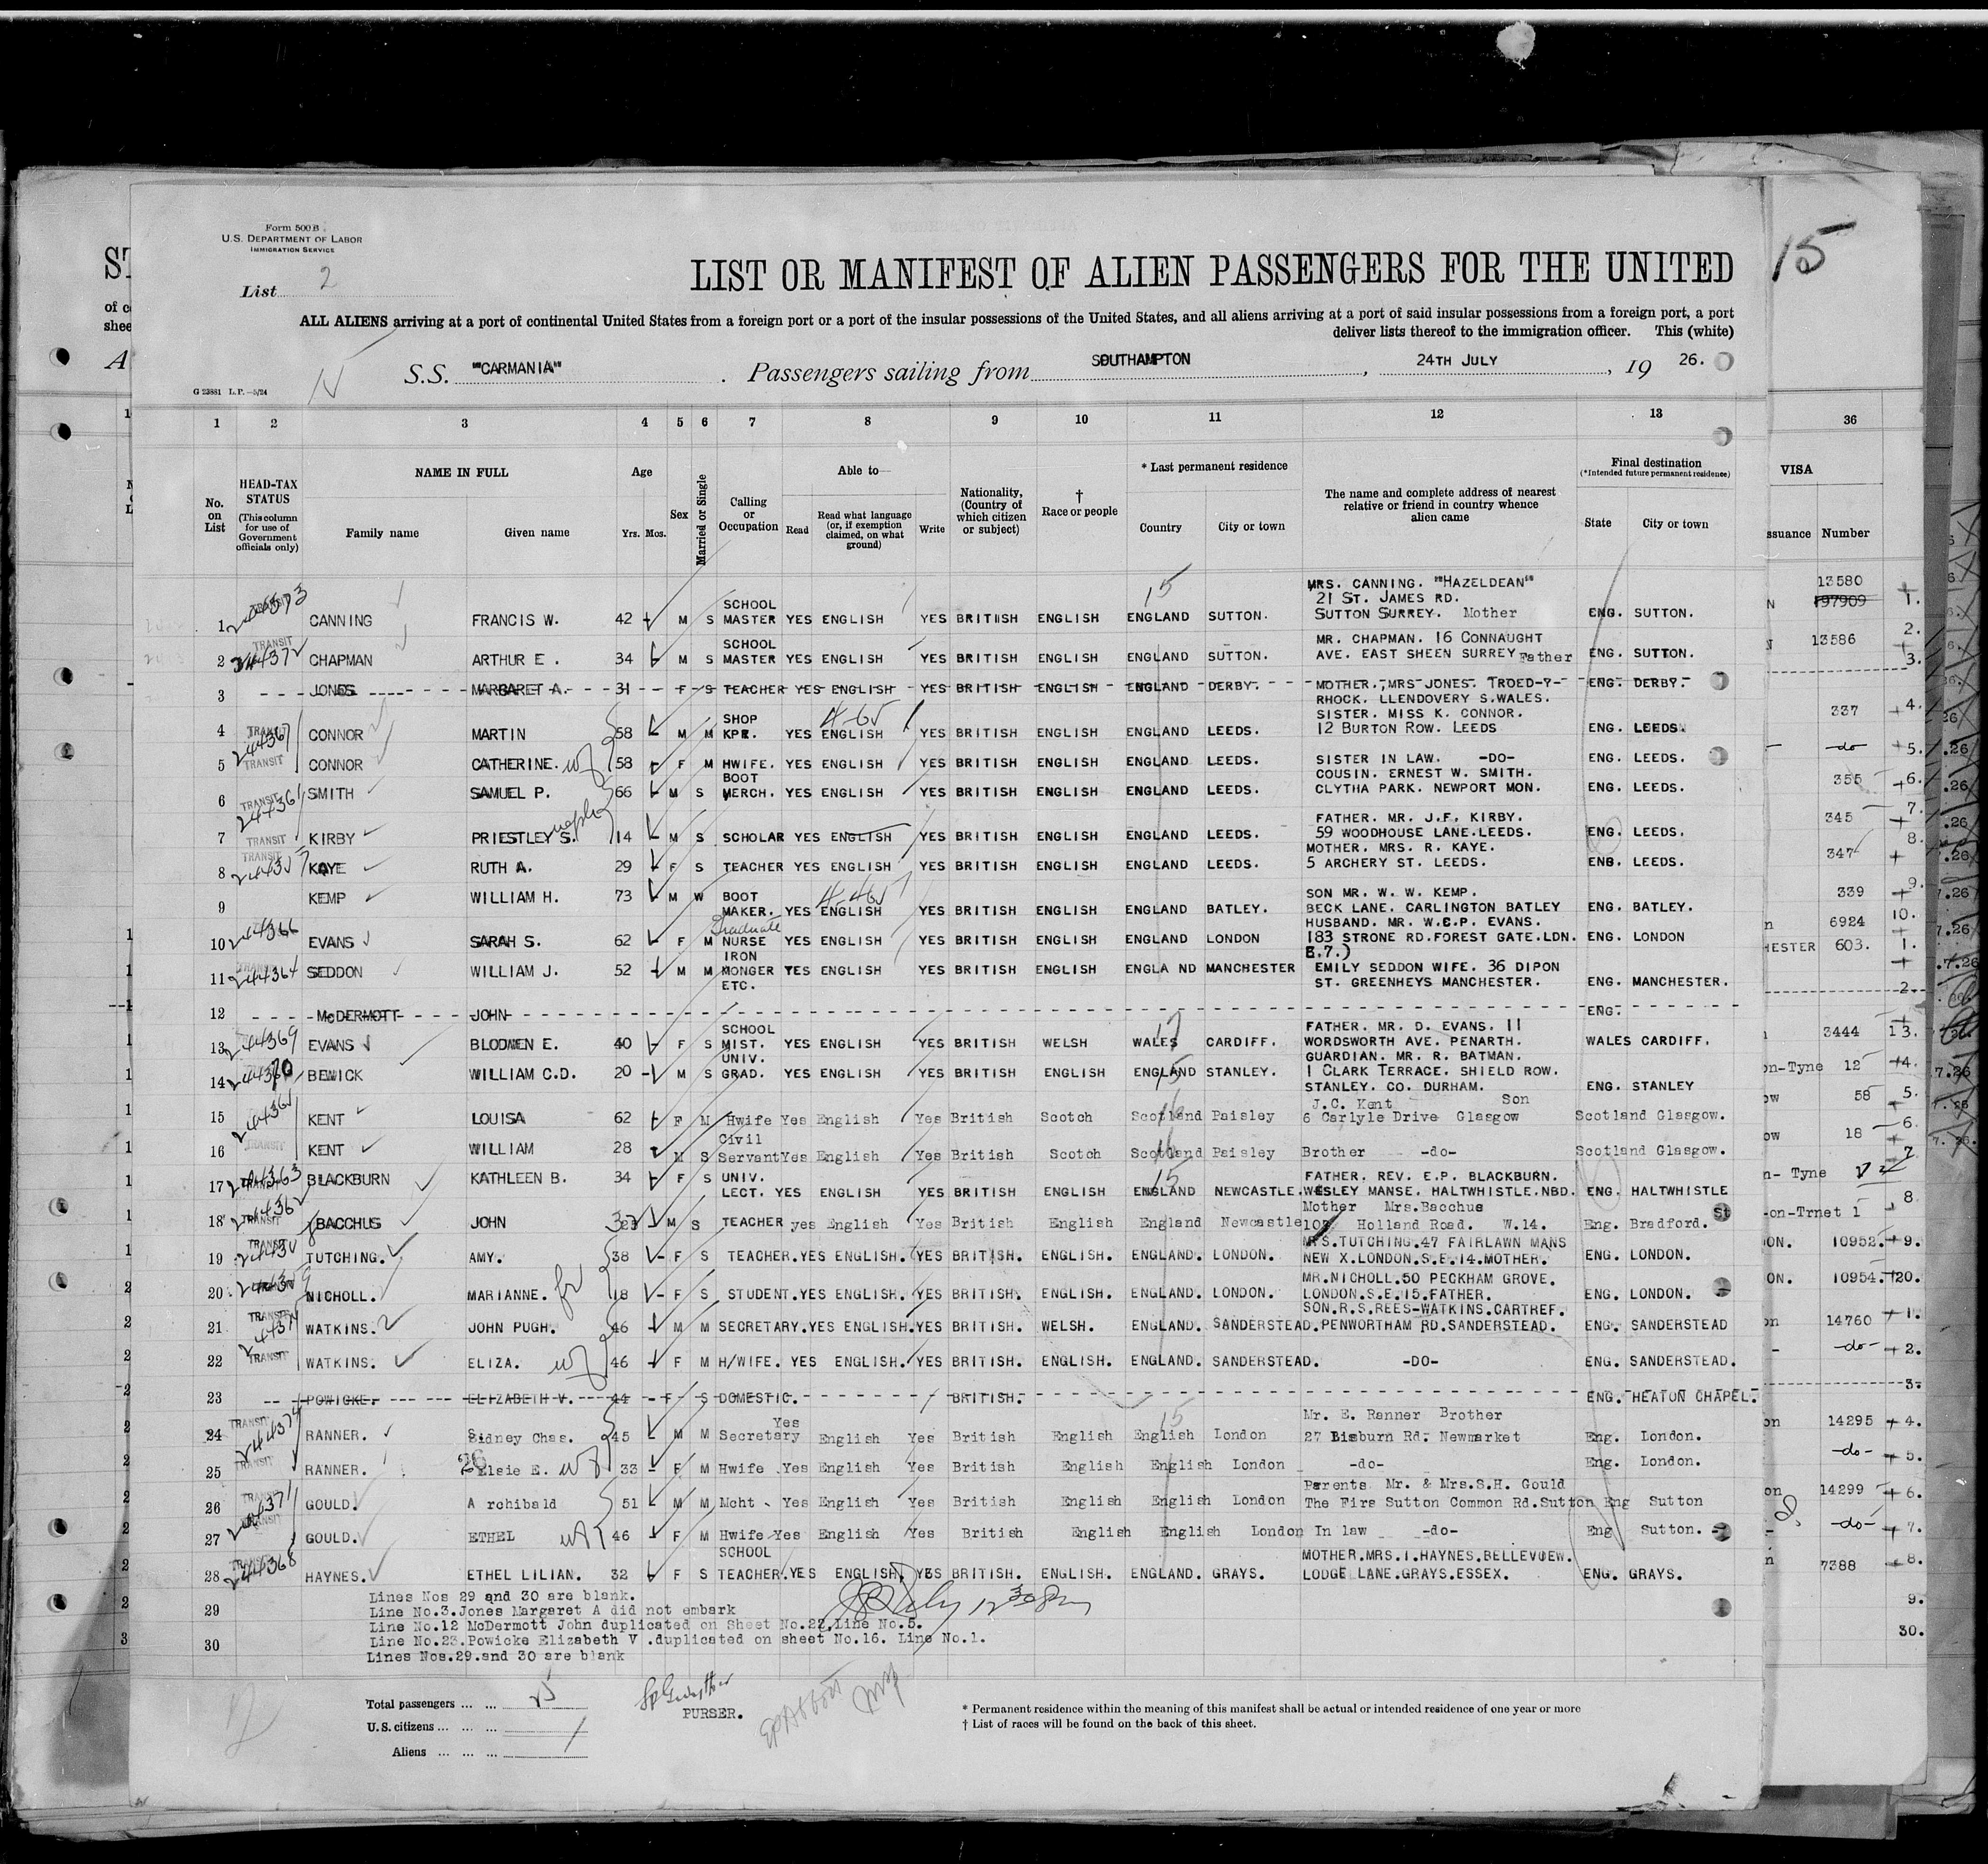 Form 500 B
U.S. DEPARTMENT OF LABOR
IMMIGRATION SERVICE
List 2
LIST OR MANIFEST OF ALIEN PASSENGERS FOR THE UNITED
15
ALL ALIENS arriving at a port of continental United States from a foreign port or a port of the insular possessions of the United States, and all aliens arriving at a port of said insular possessions from a foreign port, a port
deliver lists thereof to the immigration officer. This (white)
S.S. "CARMANIA" . Passengers sailing from SOUTHAMPTON , 24TH JULY , 19 26.
G 23881 L.P.—5/24
1 2 3 4 5 6 7 8 9 10 11 12 13 36
No. on List
HEAD-TAX STATUS (This column for use of Government officials only)
NAME IN FULL
Family name Given name
Age
Yrs. Mos.
Sex
Married or Single
Calling or Occupation
Able to—
Read Read what language (or, if exemption claimed, on what ground) Write
Nationality, (Country of which citizen or subject)
† Race or people
* Last permanent residence
Country City or town
The name and complete address of nearest relative or friend in country whence alien came
Final destination
(*Intended future permanent residence)
State City or town
VISA
ssuance Number
1 CANNING FRANCIS W. 42 M S SCHOOL MASTER YES ENGLISH YES BRITISH ENGLISH ENGLAND SUTTON. MRS. CANNING. "HAZELDEAN" 21 ST. JAMES RD. SUTTON SURREY. Mother ENG. SUTTON. 13580 197909 1.
2 TRANSIT CHAPMAN ARTHUR E. 34 M S SCHOOL MASTER YES ENGLISH YES BRITISH ENGLISH ENGLAND SUTTON. MR. CHAPMAN. 16 CONNAUGHT AVE. EAST SHEEN SURREY Father ENG. SUTTON. 13586 2.
3 JONES MARGARET A. 31 F S TEACHER YES ENGLISH YES BRITISH ENGLISH ENGLAND DERBY. MOTHER. MRS JONES. TROED-Y-RHOCK. LLENDOVERY S.WALES. ENG. DERBY. 3.
4 TRANSIT CONNOR MARTIN 58 M M SHOP KPR. YES ENGLISH YES BRITISH ENGLISH ENGLAND LEEDS. SISTER. MISS K. CONNOR. 12 BURTON ROW. LEEDS ENG. LEEDS. 337 4.
5 TRANSIT CONNOR CATHERINE. wf 58 F M HWIFE. YES ENGLISH YES BRITISH ENGLISH ENGLAND LEEDS. SISTER IN LAW. -DO- ENG. LEEDS. -do- 5.
6 TRANSIT SMITH SAMUEL P. 66 M S BOOT MERCH. YES ENGLISH YES BRITISH ENGLISH ENGLAND LEEDS. COUSIN. ERNEST W. SMITH. CLYTHA PARK. NEWPORT MON. ENG. LEEDS. 355 6.
7 TRANSIT KIRBY PRIESTLEY S. 14 M S SCHOLAR YES ENGLISH YES BRITISH ENGLISH ENGLAND LEEDS. FATHER. MR. J.F. KIRBY. 59 WOODHOUSE LANE.LEEDS. ENG. LEEDS. 345 7.
8 TRANSIT KAYE RUTH A. 29 F S TEACHER YES ENGLISH YES BRITISH ENGLISH ENGLAND LEEDS. MOTHER. MRS. R. KAYE. 5 ARCHERY ST. LEEDS. ENG. LEEDS. 347 8.
9 KEMP WILLIAM H. 73 M W BOOT MAKER. YES ENGLISH YES BRITISH ENGLISH ENGLAND BATLEY. SON MR. W. W. KEMP. BECK LANE. CARLINGTON BATLEY ENG. BATLEY. 339 9.
10 244366 EVANS SARAH S. 62 F M Graduate NURSE YES ENGLISH YES BRITISH ENGLISH ENGLAND LONDON HUSBAND. MR. W.C.P. EVANS. 183 STRONE RD.FOREST GATE.LDN. E.7.) ENG. LONDON 6924 10.
11 244364 SEDDON WILLIAM J. 52 M M IRON MONGER ETC. YES ENGLISH YES BRITISH ENGLISH ENGLA ND MANCHESTER EMILY SEDDON WIFE. 36 DIPON ST. GREENHEYS MANCHESTER. ENG. MANCHESTER. HESTER 603. 1.
12 McDERMOTT JOHN ENG. 2.
13 244369 EVANS BLODWEN E. 40 F S SCHOOL MIST. YES ENGLISH YES BRITISH WELSH WALES CARDIFF. FATHER. MR. D. EVANS. 11 WORDSWORTH AVE. PENARTH. WALES CARDIFF. 3444 13.
14 BEWICK WILLIAM C.D. 20 M S UNIV. GRAD. YES ENGLISH YES BRITISH ENGLISH ENGLAND STANLEY. GUARDIAN. MR. R. BATMAN. 1 CLARK TERRACE. SHIELD ROW. STANLEY. CO. DURHAM. ENG. STANLEY on-Tyne 12 4.
15 KENT LOUISA 62 F M Hwife Yes English Yes British Scotch Scotland Paisley J.C. Kent Son 6 Carlyle Drive Glasgow Scotland Glasgow. ow 58 5.
16 TRANSIT KENT WILLIAM 28 M S Civil Servant Yes English Yes British Scotch Scotland Paisley Brother -do- Scotland Glasgow. ow 18 6.
17 244363 BLACKBURN KATHLEEN B. 34 F S UNIV. LECT. YES ENGLISH YES BRITISH ENGLISH ENGLAND NEWCASTLE. FATHER. REV. E.P. BLACKBURN. WESLEY MANSE. HALTWHISTLE.NBD. ENG. HALTWHISTLE n- Tyne 7
18 TRANSIT BACCHUS JOHN M S TEACHER yes English Yes British English England Newcastle Mother Mrs.Bacchus Holland Road. W.14. Eng. Bradford. St on-Trnet 1 8
19 TRANSIT TUTCHING. AMY. 38 F S TEACHER. YES ENGLISH. YES BRITISH. ENGLISH. ENGLAND. LONDON. MRS.TUTCHING.47 FAIRLAWN MANS NEW X.LONDON.S.E.14.MOTHER. ENG. LONDON. ON. 10952. 9.
20 NICHOLL. MARIANNE. 18 F S STUDENT. YES ENGLISH. YES BRITISH. ENGLISH. ENGLAND. LONDON. MR.NICHOLL.50 PECKHAM GROVE. LONDON.S.E.15.FATHER. ENG. LONDON. ON. 10954. 20.
21 TRANSIT WATKINS. JOHN PUGH. 46 M M SECRETARY. YES ENGLISH. YES BRITISH. WELSH. ENGLAND. SANDERSTEAD. SON.R.S.REES-WATKINS.CARTREF. PENWORTHAM RD.SANDERSTEAD. ENG. SANDERSTEAD on 14760 1.
22 TRANSIT WATKINS. ELIZA. wf 46 F M H/WIFE. YES ENGLISH. YES BRITISH. ENGLISH. ENGLAND. SANDERSTEAD. -DO- ENG. SANDERSTEAD. -do- 2.
23 POWICKE. ELIZABETH V. 44 F S DOMESTIC. BRITISH. ENG. HEATON CHAPEL. 3.
24 TRANSIT RANNER. Sidney Chas. 45 M M Secretary Yes English Yes British English English London Mr. E. Ranner Brother 27 Lisburn Rd. Newmarket Eng. London. on 14295 4.
25 TRANSIT RANNER. Elsie E. wf 33 F M Hwife Yes English Yes British English English London -do- Eng. London. -do- 5.
26 TRANSIT GOULD. A rchibald 51 M M Mcht Yes English Yes British English English London Parents Mr. & Mrs.S.H. Gould The Firs Sutton Common Rd.Sutton Eng Sutton on 14299 6.
27 TRANSIT GOULD. ETHEL wf 46 F M Hwife Yes English Yes British English English London In law -do- Eng Sutton. -do- 7.
28 244368 HAYNES. ETHEL LILIAN. 32 F S SCHOOL TEACHER. YES ENGLISH. YES BRITISH. ENGLISH. ENGLAND. GRAYS. MOTHER.MRS.I.HAYNES.BELLEVUEW. LODGE LANE.GRAYS.ESSEX. ENG. GRAYS. 7388 8.
Lines Nos 29 and 30 are blank.
29 Line No.3.Jones Margaret A did not embark 9.
Line No.12 McDermott John duplicated on Sheet No.22,Line No.5.
30 Line No.23.Powicke Elizabeth V .duplicated on sheet No.16. Line No.1. 30.
Lines Nos.29.and 30 are blank
Total passengers ... ... 25
PURSER.
U.S. citizens ... ... ...
Aliens ... ... ...
* Permanent residence within the meaning of this manifest shall be actual or intended residence of one year or more
† List of races will be found on the back of this sheet.